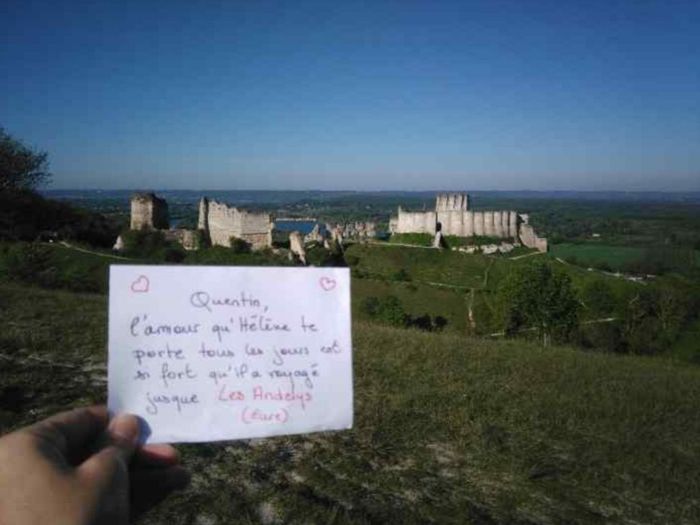 Quentin,
l'amour qu'Hélène te
porte tous les jours est
si fort qu'il a voyagé
jusque Les Andelys
(Eure)